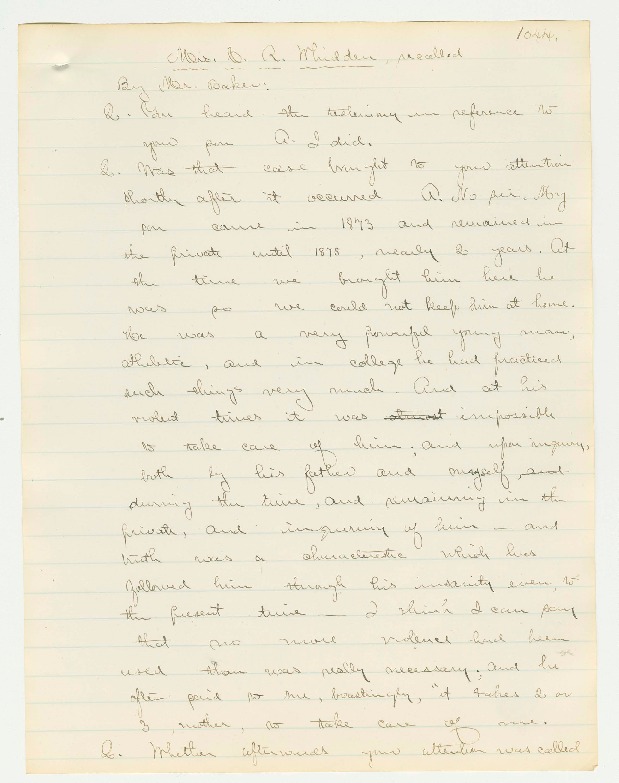 1044.
Mrs. O. R. Whidden, recalled
By Mr. Baker:
Q. You heard the testimony in reference to
your son A. I did.
Q. Was that case brought to your attention
shortly after it occurred A. No sir. My
son came in 1873 and remained in
the private until 1875, nearly 2 years. At
the time we brought him here he
was so we could not keep him at home.
He was a very powerful young man,
athletic, and in college he had practiced
such things very much. And at his
violent times it was almost impossible
to take care of him; and upon inquiry,
both by his father and myself, and
during the time, and remaining in the
private, and inquiring of him – and
truth was a characteristic which has
followed him through his insanity even, to
the present time – I think I can say
that no more violence had been
used than was really necessary; and he
often said to me, boastingly, "it takes 2 or
3, mother, to take care of me.
Q. Whether afterwards your attention was called